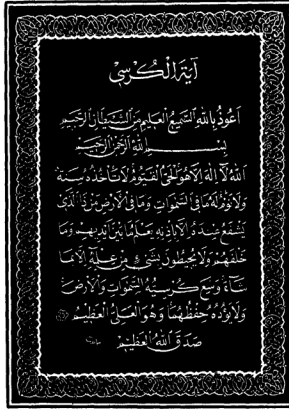 آية الكرسي
اعوذ بالله السميع العليم من الشيطان الرجيم
بسم الله الرحمن الرحيم
الله لا إله الا هو الحي القيوم لا تأخذه سنة
ولا نوم له ما في السموات وما في الأرض من ذا الذي
يشفع عنده الا بإذنه يعلم ما بين ايديهم وما
خلفهم ولا يحيطون بشيء من علمه الا بما
شاء وسع كرسيه السموات والأرض
ولا يؤده حفظهما وهو العلي العظيم
صدق الله العظيم